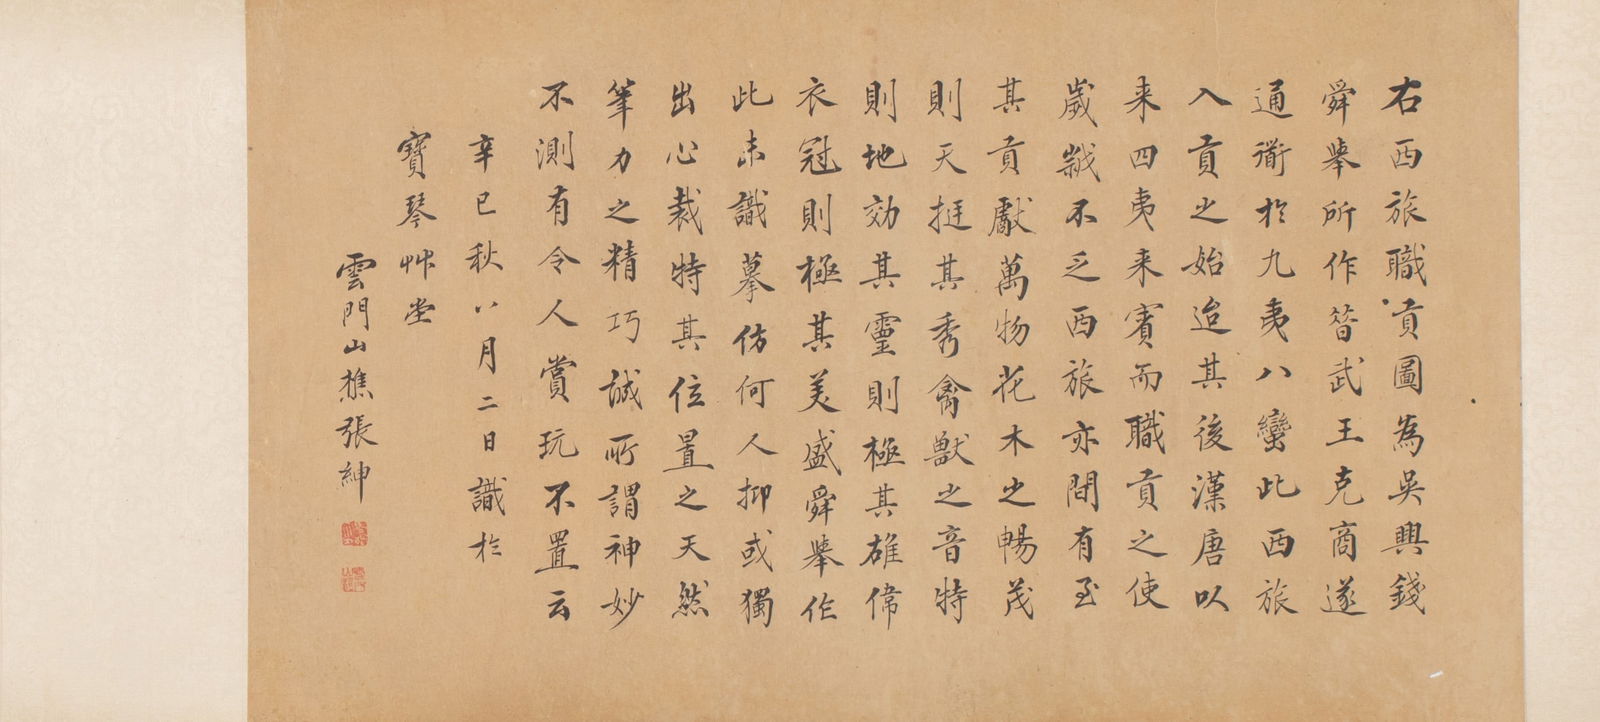 右西旅職貢圖為吳興錢
舜舉所作昔武王克商遂
通道於九夷八蠻此西旅
入貢之始迨其後漢唐以
来四夷来賓而職貢之使
歲㡬不乏西旅亦間有至
其貢獻萬物花木之暢茂
則天挺其秀禽獸之音特
則地効其靈則極其雄偉
衣冠則極其美盛舜舉作
此未識摹仿何人抑或獨
出心裁特其位置之天然
筆力之精巧誠所謂神妙
不測有令人賞玩不置云
辛巳秋八月二日識於
寶琴艸堂
雲門山樵張紳